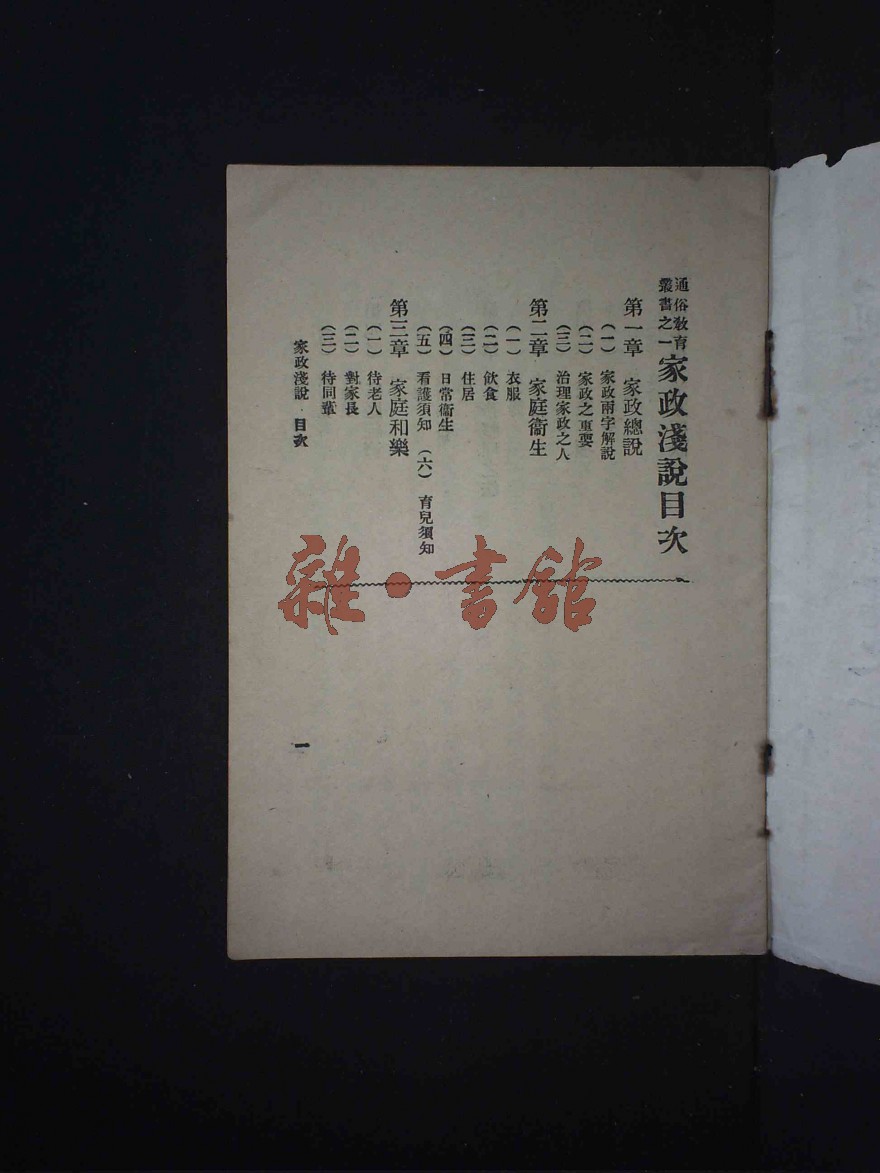 通俗教育
叢書之一
家政淺說目次
第一章　家政總說
（一）　家政兩字解說
（二）　家政之重要
（三）　治理家政之人
第二章　家庭衞生
（一）　衣服
（二）　飲食
（三）　住居
（四）　日常衞生
（五）　看護須知　（六）　育兒須知
第三章　家庭和樂
（一）　待老人
（二）　對家長
（三）　待同輩
家政淺說　目次
一
雜·書館